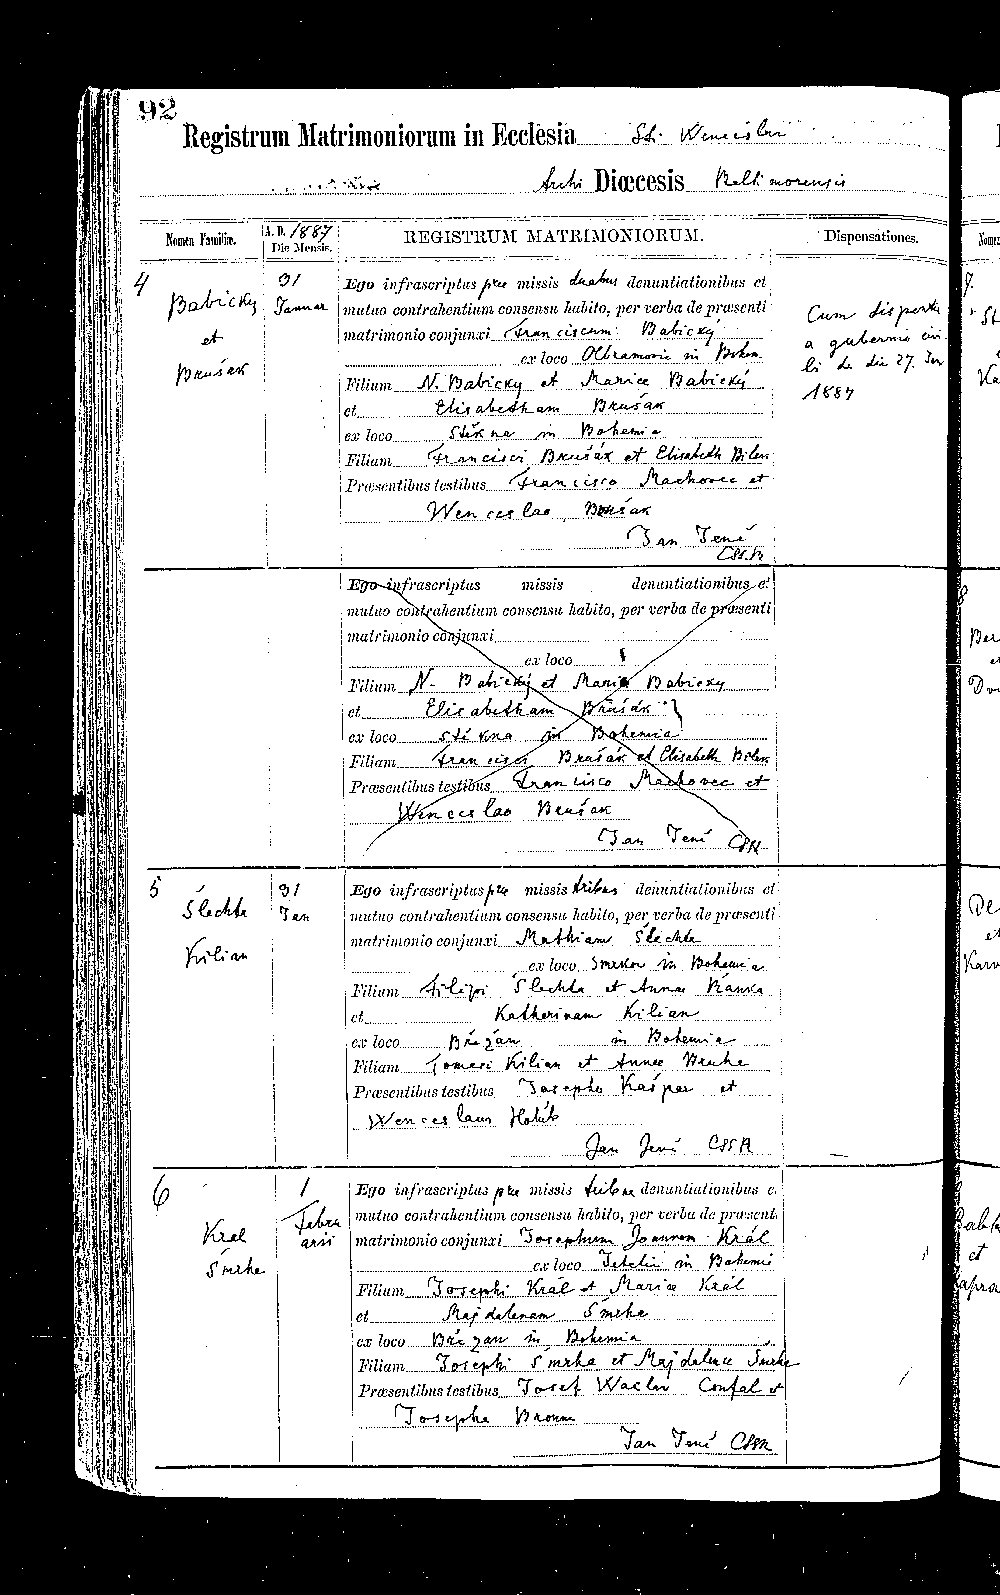 92
Registrum Matrimoniorum in Ecclesia St. Wenceslai
Archi Diœcesis Baltimorensis
Nomen Familiæ.
A. D. 1887
Die Mensis.
REGISTRUM MATRIMONIORUM.
Dispensationes.
4
Babicky
et
Brušák
31
Januar
Ego infrascriptus præ missis duabus denuntiationibus et
mutuo contrahentium consensu habito, per verba de præsenti
matrimonio conjunxi Franciscum Babický
ex loco Olbramovic in Bohem
Filium N. Babicky et Mariæ Babický
et Elisabetham Brušák
ex loco Stěkna in Bohemia
Filiam Francisci Brušák et Elisabeth Bilek
Præsentibus testibus Francisco Machovec et
Wenceslao Brušak
Jan Jenč
CSSR
Cum dispensa
a gubernio civi
li de die 27. Jan
1887
Ego infrascriptus missis denuntiationibus et
mutuo contrahentium consensu habito, per verba de præsenti
matrimonio conjunxi
ex loco
Filium N. Babický et Mariæ Babicky
et Elisabetham Brušák
ex loco Stěkna in Bohemia
Filiam Francisci Brušák et Elisabeth Bilek
Præsentibus testibus Francisco Machovec et
Wenceslao Brušak
Jan Jenč CSSR
5
Šlechta
Kilian
31
Jan
Ego infrascriptus præ missis tribus denuntiationibus et
mutuo contrahentium consensu habito, per verba de præsenti
matrimonio conjunxi Mathiam Šlechta
ex loco Smrkov in Bohemia
Filium Filipi Šlechta et Annæ
et Katherinam Kilian
ex loco Břežan in Bohemia
Filiam Tomesi Kilian et Annæ Bruha
Præsentibus testibus Josepho Kašpar et
Wenceslaus Holub
Jan Jenč CSSR
6
Kral
Smrha
1
Febru
arii
Ego infrascriptus præ missis tribus denuntiationibus e
mutuo contrahentium consensu habito, per verba de præsent
matrimonio conjunxi Josephum Joannem Král
ex loco in Bohemia
Filium Josephi Král et Mariæ Král
et Majdalenam Smrha
ex loco Břežan in Bohemia
Filiam Josephi Smrha et Majdalenæ Smrha
Præsentibus testibus Josef Waclav Confal et
Josepha
Jan Jenč CSSR